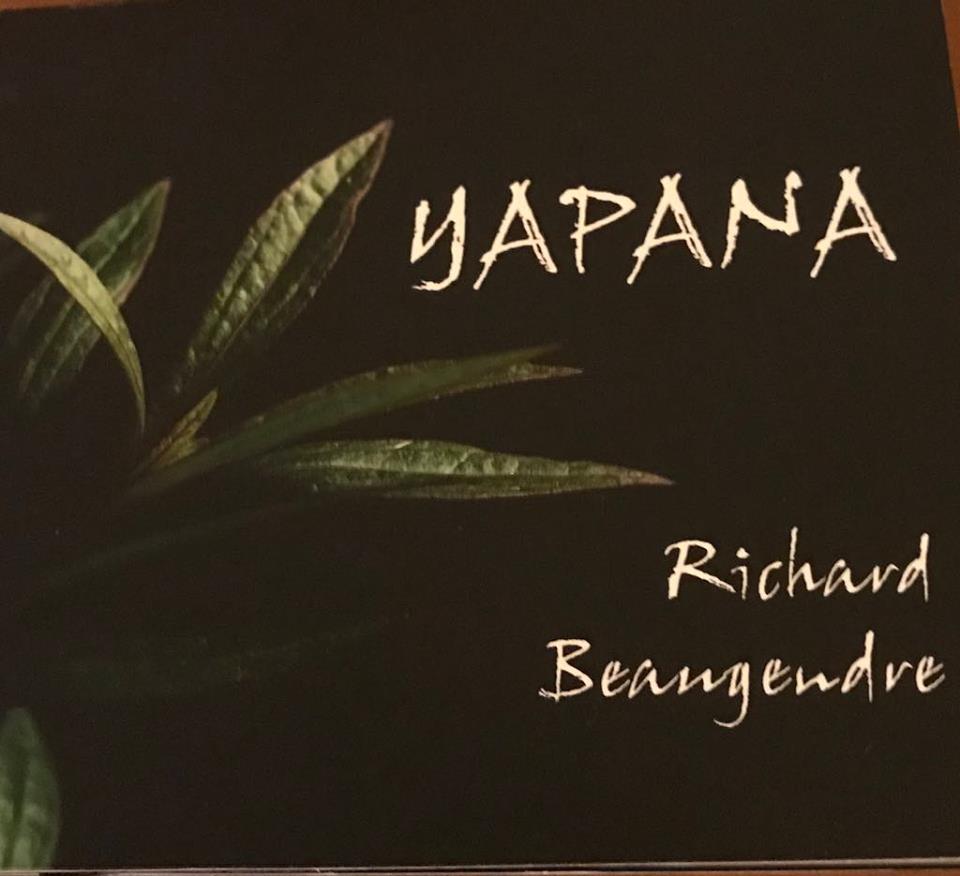 YAPANA
Richard
Beaugendre